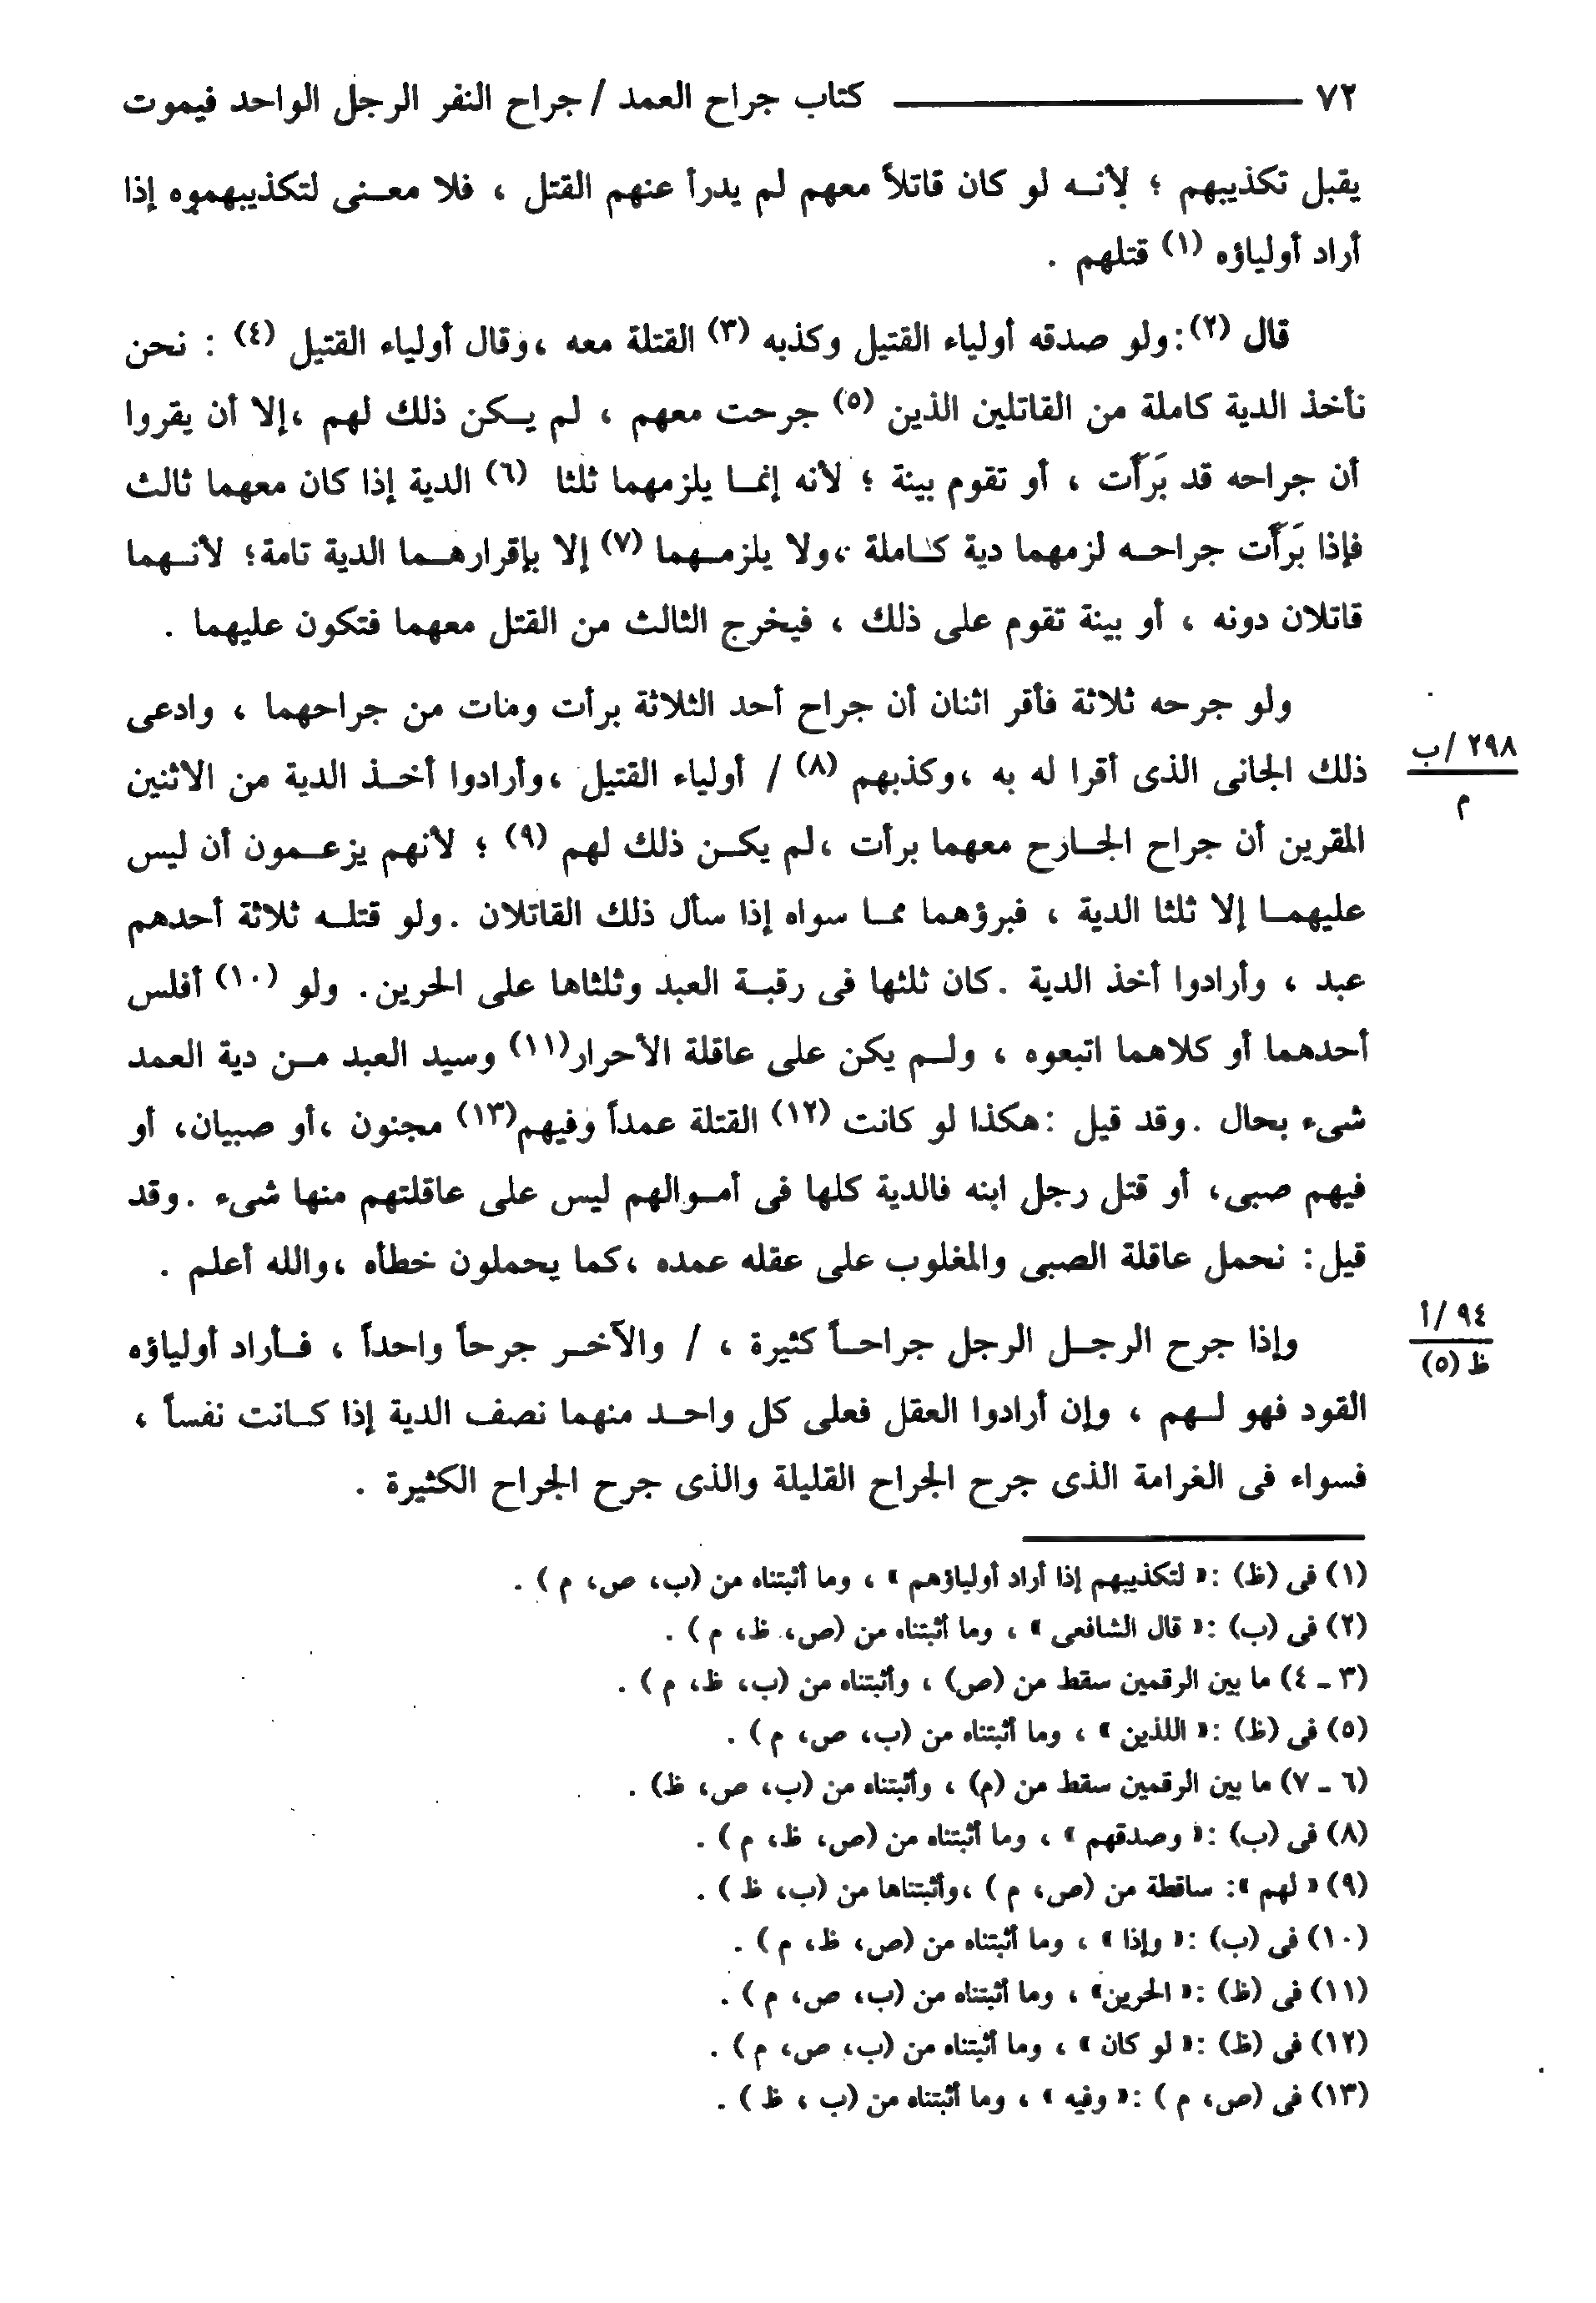 ٧٢ كتاب جراح العمد / جراح النفر الرجل الواحد فيموت
يقبل تكذيبهم ؛ لأنه لو كان قاتلاً معهم لم يدرأ عنهم القتل ، فلا معنى لتكذيبهموه إذا
أراد أولياؤه (١) قتلهم .
قال (٢): ولو صدقه أولياء القتيل وكذبه (٣) القتلة معه ، وقال أولياء القتيل (٤) : نحن
نأخذ الدية كاملة من القاتلين الذين (٥) جرحت معهم ، لم يكن ذلك لهم ، إلا أن يقروا
أن جراحه قد بَرَأَت ، أو تقوم بينة ؛ لأنه إنما يلزمهما ثلثا (٦) الدية إذا كان معهما ثالث
فإذا بَرَأَت جراحه لزمهما دية كاملة ، ولا يلزمهما (٧) إلا بإقرارهما الدية تامة؛ لأنهما
قاتلان دونه ، أو بينة تقوم على ذلك ، فيخرج الثالث من القتل معهما فتكون عليهما .
ولو جرحه ثلاثة فأقر اثنان أن جراح أحد الثلاثة برأت ومات من جراحهما ، وادعى
ذلك الجانى الذى أقرا له به ، وكذبهم (٨) / أولياء القتيل ، وأرادوا أخذ الدية من الاثنين
٢٩٨ /ب
م
المقرين أن جراح الجارح معهما برأت ، لم يكن ذلك لهم (٩) ؛ لأنهم يزعمون أن ليس
عليهما إلا ثلثا الدية ، فبرؤهما مما سواه إذا سأل ذلك القاتلان . ولو قتله ثلاثة أحدهم
عبد ، وأرادوا أخذ الدية . كان ثلثها فى رقبة العبد وثلثاها على الحرين. ولو (١٠) أفلس
أحدهما أو كلاهما اتبعوه ، ولم يكن على عاقلة الأحرار(١١) وسيد العبد من دية العمد
شىء بحال . وقد قيل : هكذا لو كانت (١٢) القتلة عمداً وفيهم(١٣) مجنون ، أو صبيان، أو
فيهم صبى، أو قتل رجل ابنه فالدية كلها فى أموالهم ليس على عاقلتهم منها شىء . وقد
قيل: نحمل عاقلة الصبى والمغلوب على عقله عمده ، كما يحملون خطأه ، والله أعلم .
وإذا جرح الرجل الرجل جراحاً كثيرة ، / والآخر جرحاً واحداً ، فأراد أولياؤه
٩٤ /أ
ظ (٥)
القود فهو لهم ، وإن أرادوا العقل فعلى كل واحد منهما نصف الدية إذا كانت نفساً ،
فسواء فى الغرامة الذى جرح الجراح القليلة والذى جرح الجراح الكثيرة .
(١) فى (ظ) : « لتكذيبهم إذا أراد أولياؤهم » ، وما أثبتناه من (ب، ص، م ) .
(٢) فى (ب) : « قال الشافعى » ، وما أثبتناه من (ص، ظ، م ) .
(٣ - ٤) ما بين الرقمين سقط من (ص) ، وأثبتناه من (ب، ظ، م ) .
(٥) فى (ظ) : « اللذين » ، وما أثبتناه من (ب، ص، م ) .
(٦ - ٧) ما بين الرقمين سقط من (م) ، وأثبتناه من (ب، ص، ظ) .
(٨) فى (ب) : « وصدقهم » ، وما أثبتناه من (ص، ظ، م ) .
(٩) « لهم »: ساقطة من (ص، م ) ، وأثبتناها من (ب، ظ ) .
(١٠) فى (ب) : « وإذا » ، وما أثبتناه من (ص، ظ، م ) .
(١١) فى (ظ) : « الحرين» ، وما أثبتناه من (ب، ص، م ) .
(١٢) فى (ظ) : « لو كان » ، وما أثبتناه من (ب، ص، م ) .
(١٣) فى (ص، م ) : « وفيه » ، وما أثبتناه من (ب ، ظ ) .